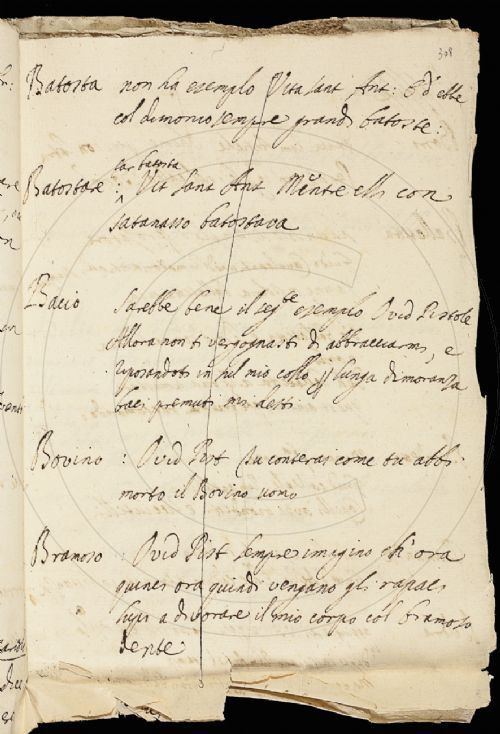 308
Batosta non ha esempio Vita Sant Ant: Ed ebbe
col dimonio sempre grandi batoste:
Far batosta
Batostare : Vit Sant Ant Mentre elli con
satanasso batostava
Bacio Sarebbe bene il seg.te esempio Ovid Pistole
Allora non ti vergognasti di abbracciarmi, e
riposandoti in sul mio collo lunga dimoranza
baci premuti mi desti
Bovino : Ovid Pist tu conterai come tu abbi
morto il Bovino uomo
Bramoso : Ovid Pist Sempre imagino ch ora
quinci ora quindi vengano gli rapaci
lupi a divorare il mio corpo col bramoso
dente